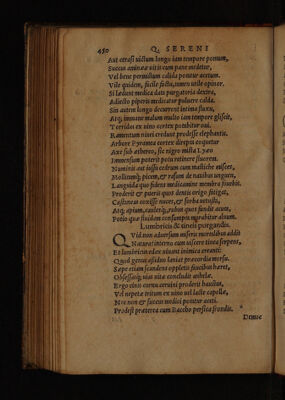 450 Q. SERENI
Aut cerasi uictum longo iam tempore pomum,
Succus aminææ uitis cum pane medetur,
Vel bene peruictum calida potatur acetum.
Vile quidem, facile factu, tamen utile
Si lædunt medica data purgatoria dextra,
Adiecto piperis medicatur puluere calda.
Sin autem longo decurrent intima fluxu,
Atq; immutat malum multo iam tempore gliscit,
Torridus ex uino cortex potabitur oui.
Ramentum niuei credunt prodesse elephantis.
Arbore Pyramea cortex direptus coquetur
Axe sub æthereo, sic nigro mista Lyæo
Immensum poterit potu retinere fluorem.
Numinis aut iussis cedrum cum mastiche misces,
Mollitumq; picem, & rasum de natibus unguen,
Languida quo fident medicamine membra
Proderit & puerit quos dentis origo fatigat,
Castaneas coxisse nuces, & sorba
Atq; apium, caulesq; rubus quos fundit acuta,
Potio quæ fluidam consumptis ingrabitat aluum.
Lumbricis & tineis purgandis.
Quid non aduersum miseris mortalibus addit
Natura? interno cum uiscere tinea serpens,
Et lumbricus edax uiuant inimica creanti:
Quod genus assiduo laniat præcordia morsu.
Sæpe etiam scandens oppletis faucibus hæret,
Obsessasq; uias uitæ concludit anhelæ.
Ergo cinis cornu ceruini proderit haustus,
Vel nepetæ tritum ex uino uel lacte capellæ,
Nec non & succus medici potatur aceti.
Prodest præterea cum Baccho persica frondis.